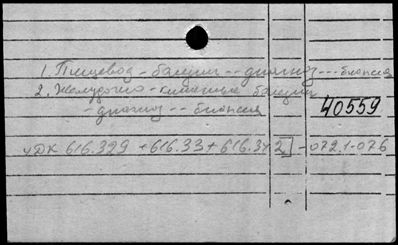 1. Пищевод - болезни -- диагноз --- биопсия
2. Желудочно - кишечные болезни
- диагноз -- биопсия
40559
УДК 616.329 + 616.33 + 616.34 2] - 072.1-076